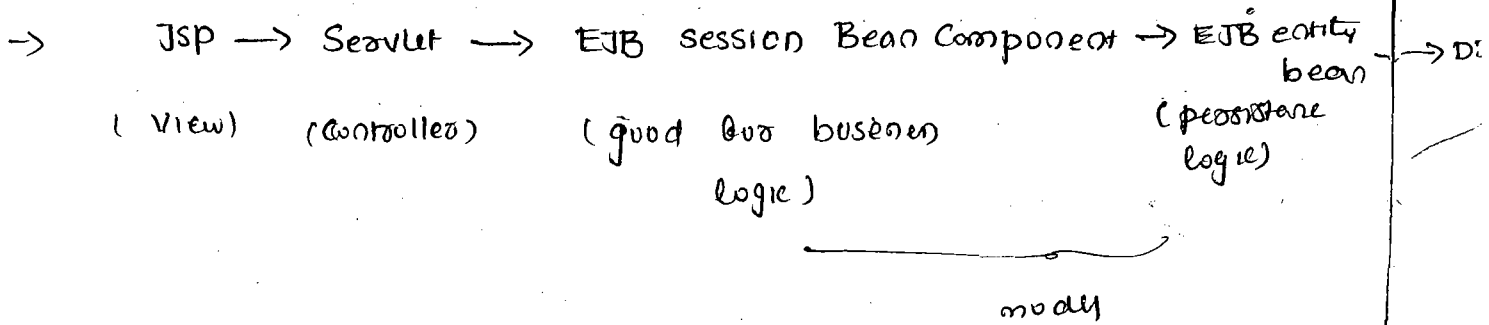 -> JSP -> Servlet -> EJB session Bean Component -> EJB entity bean -> DB
(View) (Controller) (good for business logic) (persistance logic)
model